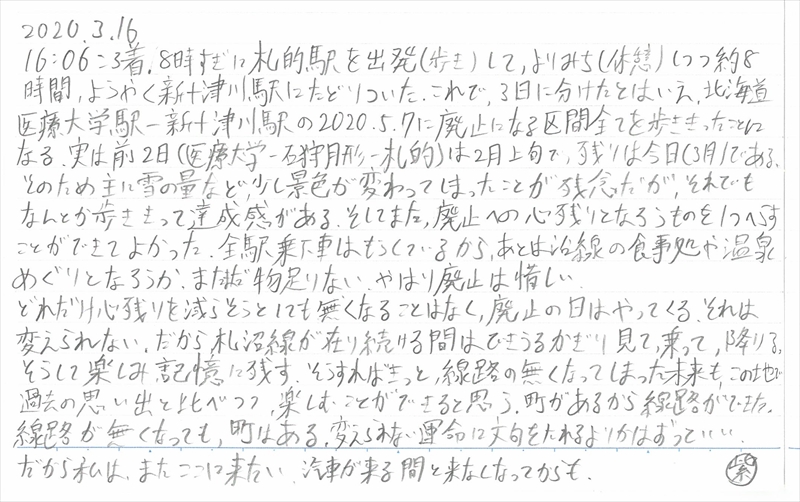 2020.3.16
16:06ころ着。8時すぎに札的駅を出発(歩き)して、よりみち(休憩)しつつ約8
時間、ようやく新十津川駅にたどりついた。これで、3日に分けたとはいえ、北海道
医療大学駅−新十津川駅の2020.5.7に廃止になる区間全てを歩ききったことに
なる。実は前2日(医療大学−石狩月形−札的)は2月上旬で、残りは今日(3月)である。
そのため主に雪の量など、少し景色が変わってしまったことが残念だが、それでも
なんとか歩ききって達成感がある。そしてまた、廃止への心残りとなろうものを1つへらす
ことができてよかった。全駅乗下車はもうしているから、あとは沿線の食事処や温泉
めぐりとなろうか。まだまだ物足りない。やはり廃止は惜しい。
どれだけ心残りを減らそうとしても無くなることはなく、廃止の日はやってくる。それは
変えられない。だから、札沼線が在り続ける間はできうるかぎり見て、乗って、降りる。
そうして楽しみ、記憶に残す。そうすればきっと、線路の無くなってしまった未来も、この地で
過去の思い出と比べつつ、楽しむことができると思う。町があるから線路ができた。
線路が無くなっても、町はある。変えられない運命に文句をたれるよりかはずっといい。
だから私は、またここに来たい。汽車が来る間と来なくなってからも。
紫